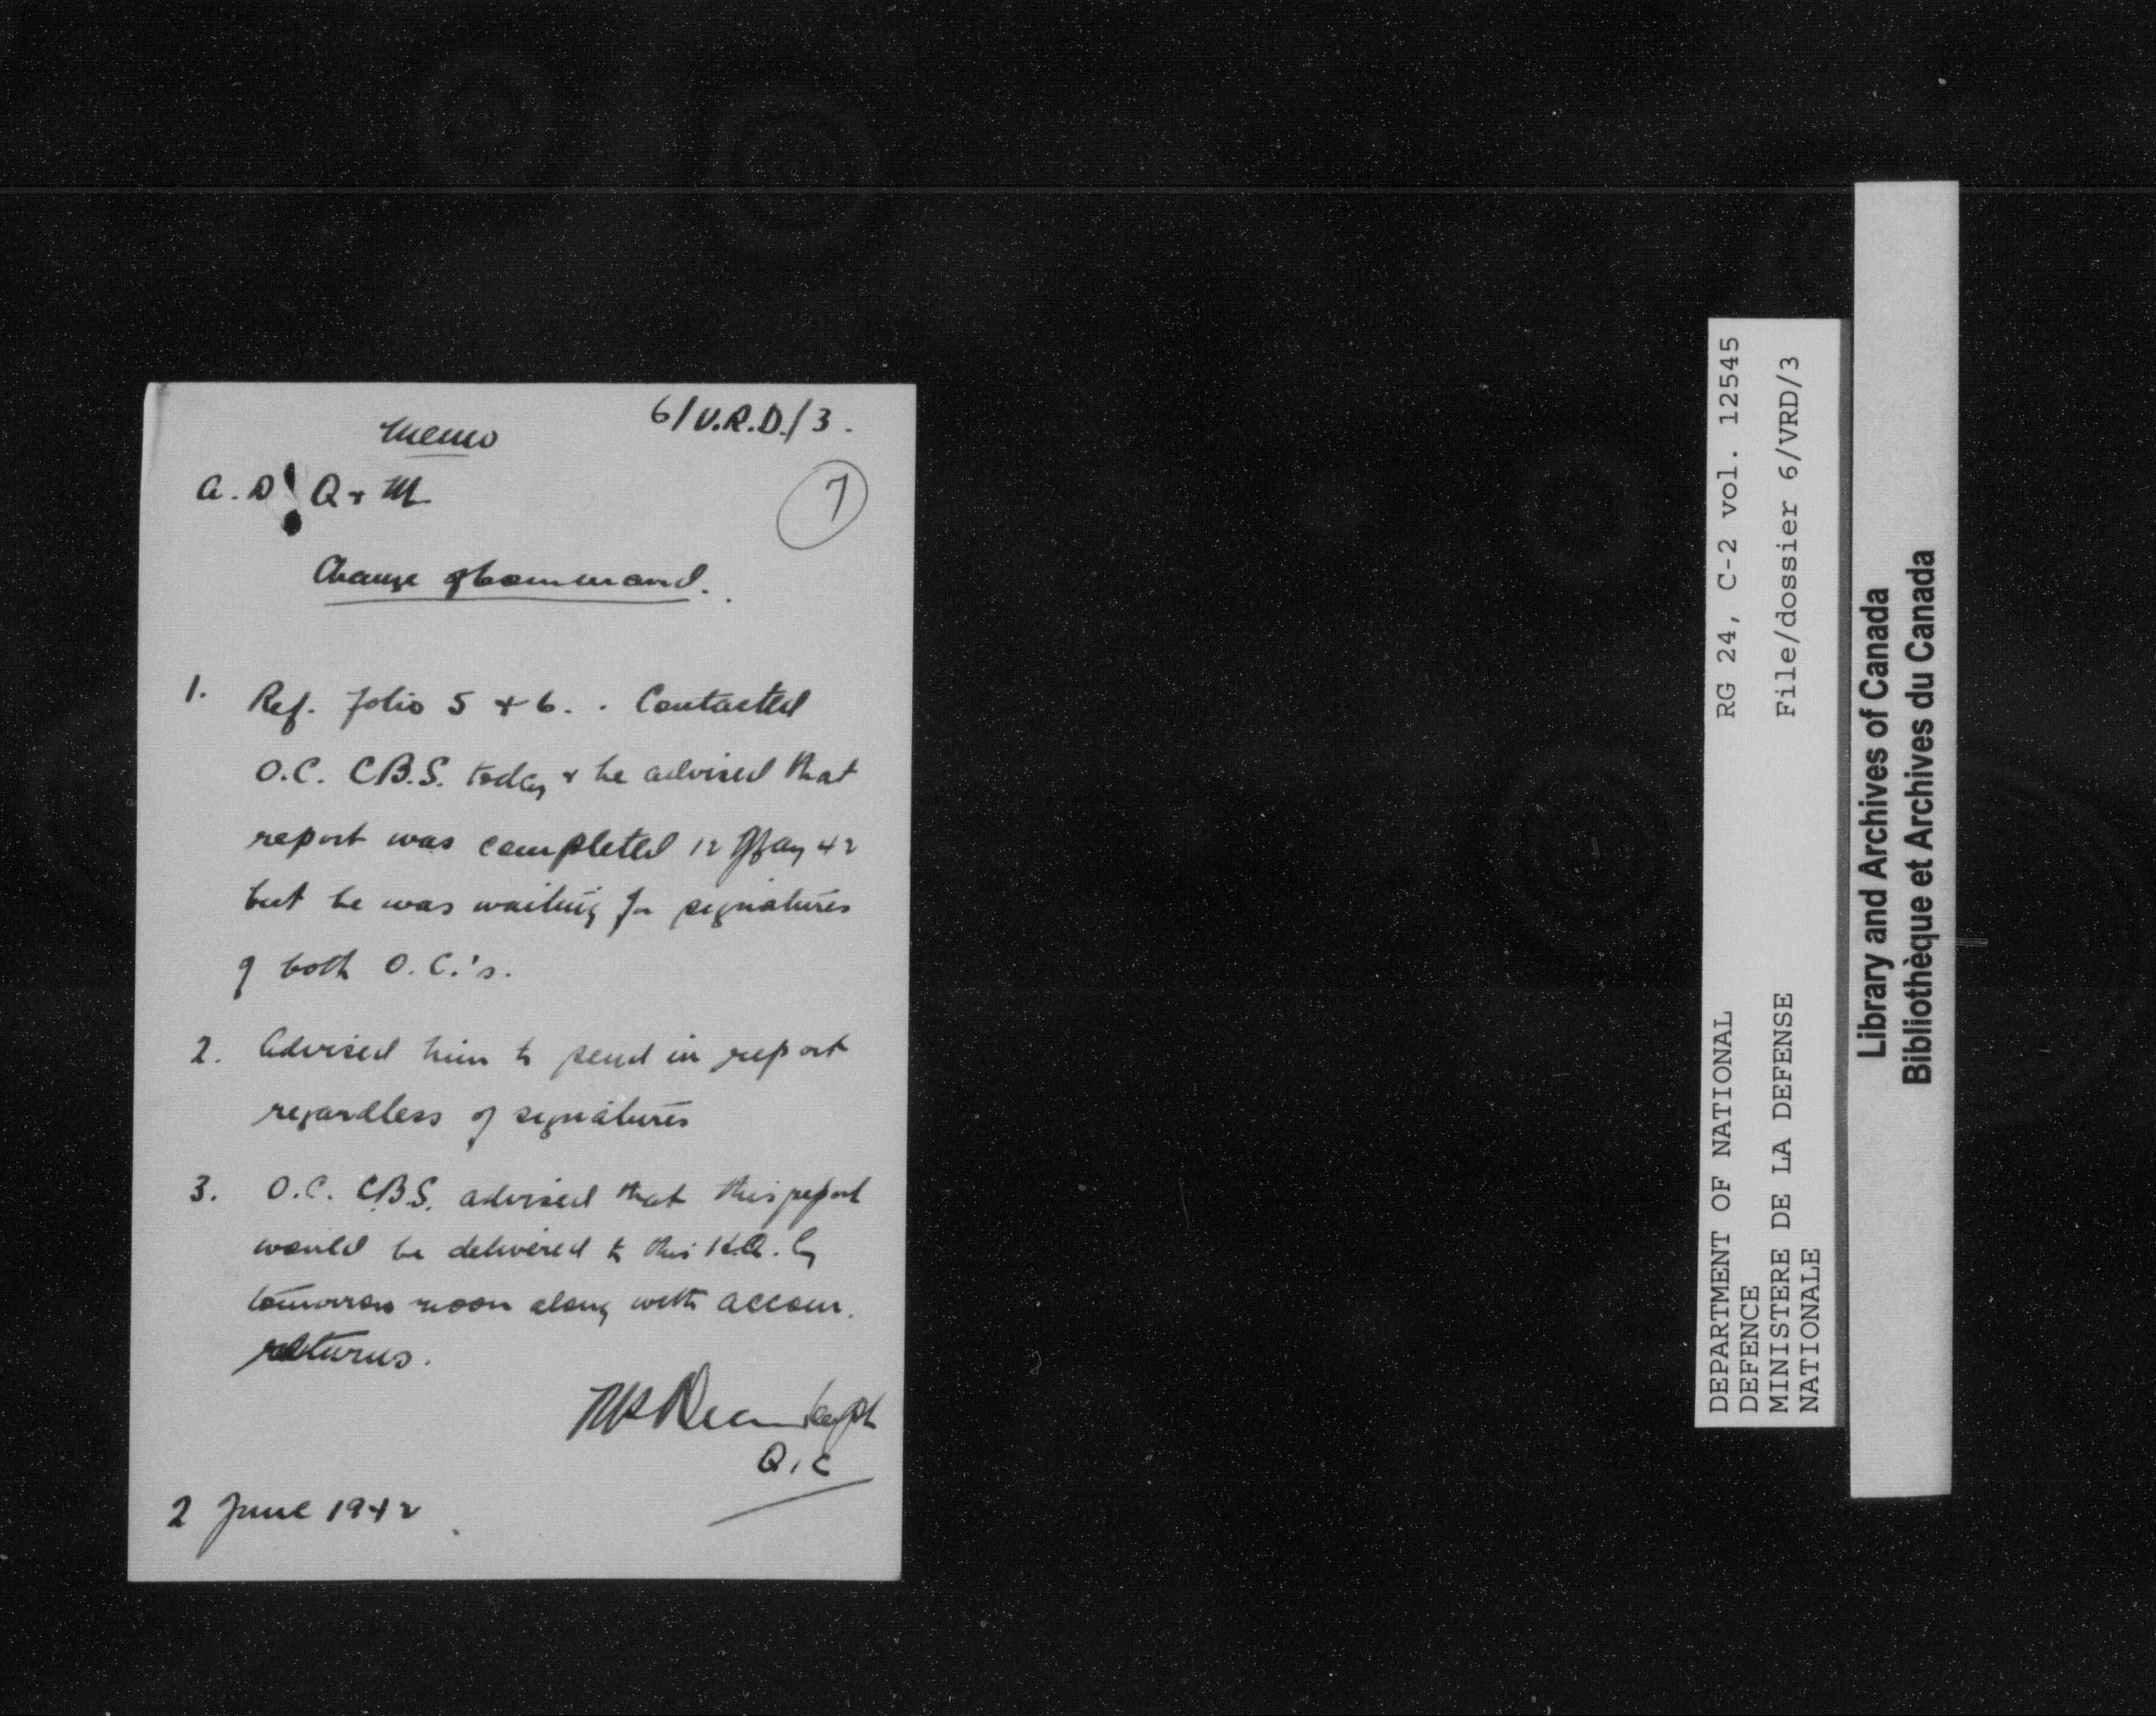 6/V.R.D./3.
Memo
A.D. Q & M
7
Change of Command.
1. Ref. folio 5 & 6. Contacted
O.C. C.B.S. today & he advised that
report was completed 12 May 42
but he was waiting for signatures
of both O.C.'s.
2. Advised him to send in report
regardless of signatures
3. O.C. C.B.S. advised that this report
would be delivered to this H.Q. by
tomorrow noon along with accom.
returns.
Capt
2 June 1942
RG 24, C-2 vol. 12545
File/dossier 6/VRD/3
DEPARTMENT OF NATIONAL
DEFENCE
MINISTERE DE LA DEFENSE
NATIONALE
Library and Archives of Canada
Bibliothèque et Archives du Canada